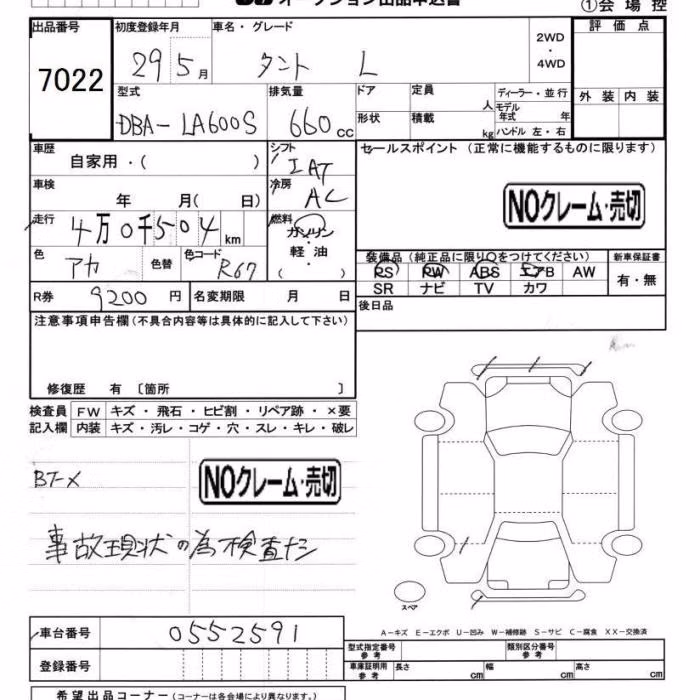 オークション出品申込書
①会場控
出品番号 初度登録年月 車名・グレード 評価点
7022 29年5月 タント L 2WD・4WD
型式 排気量 ドア 定員 人 ディーラー・並行 外装 内装
DBA-LA600S 660cc 形状 積載 kg モデル年式 年 ハンドル 左・右
車歴 自家用・( ) シフト IAT セールスポイント(正常に機能するものに限ります)
車検 年 月( 日) 冷房 AC
NOクレーム・売切
走行 4万0千504km 燃料 ガソリン・軽油・( )
色 アカ 色替 色コード R67 装備品(純正品に限り○をつけてください) 新車保証書
PS PW ABS エアB AW 有・無
SR ナビ TV カワ
R券 9200円 名変期限 月 日 後日品
注意事項申告欄(不具合内容等は具体的に記入して下さい)
修復歴 有〔箇所 〕
検査員 FW キズ・飛石・ヒビ割・リペア跡・×要
記入欄 内装 キズ・汚レ・コゲ・穴・スレ・キレ・破レ
BT-×
NOクレーム・売切
事故現状の為検査ナシ
スペア
A-キズ E-エクボ U-凹み W-補修跡 S-サビ C-腐食 XX-交換済
車台番号 0552591 型式指定番号 参考 類別区分番号 参考
登録番号 車庫証明用 参考 長さ cm 幅 cm 高さ cm
希望出品コーナー(コーナーは各会場により異なります。)